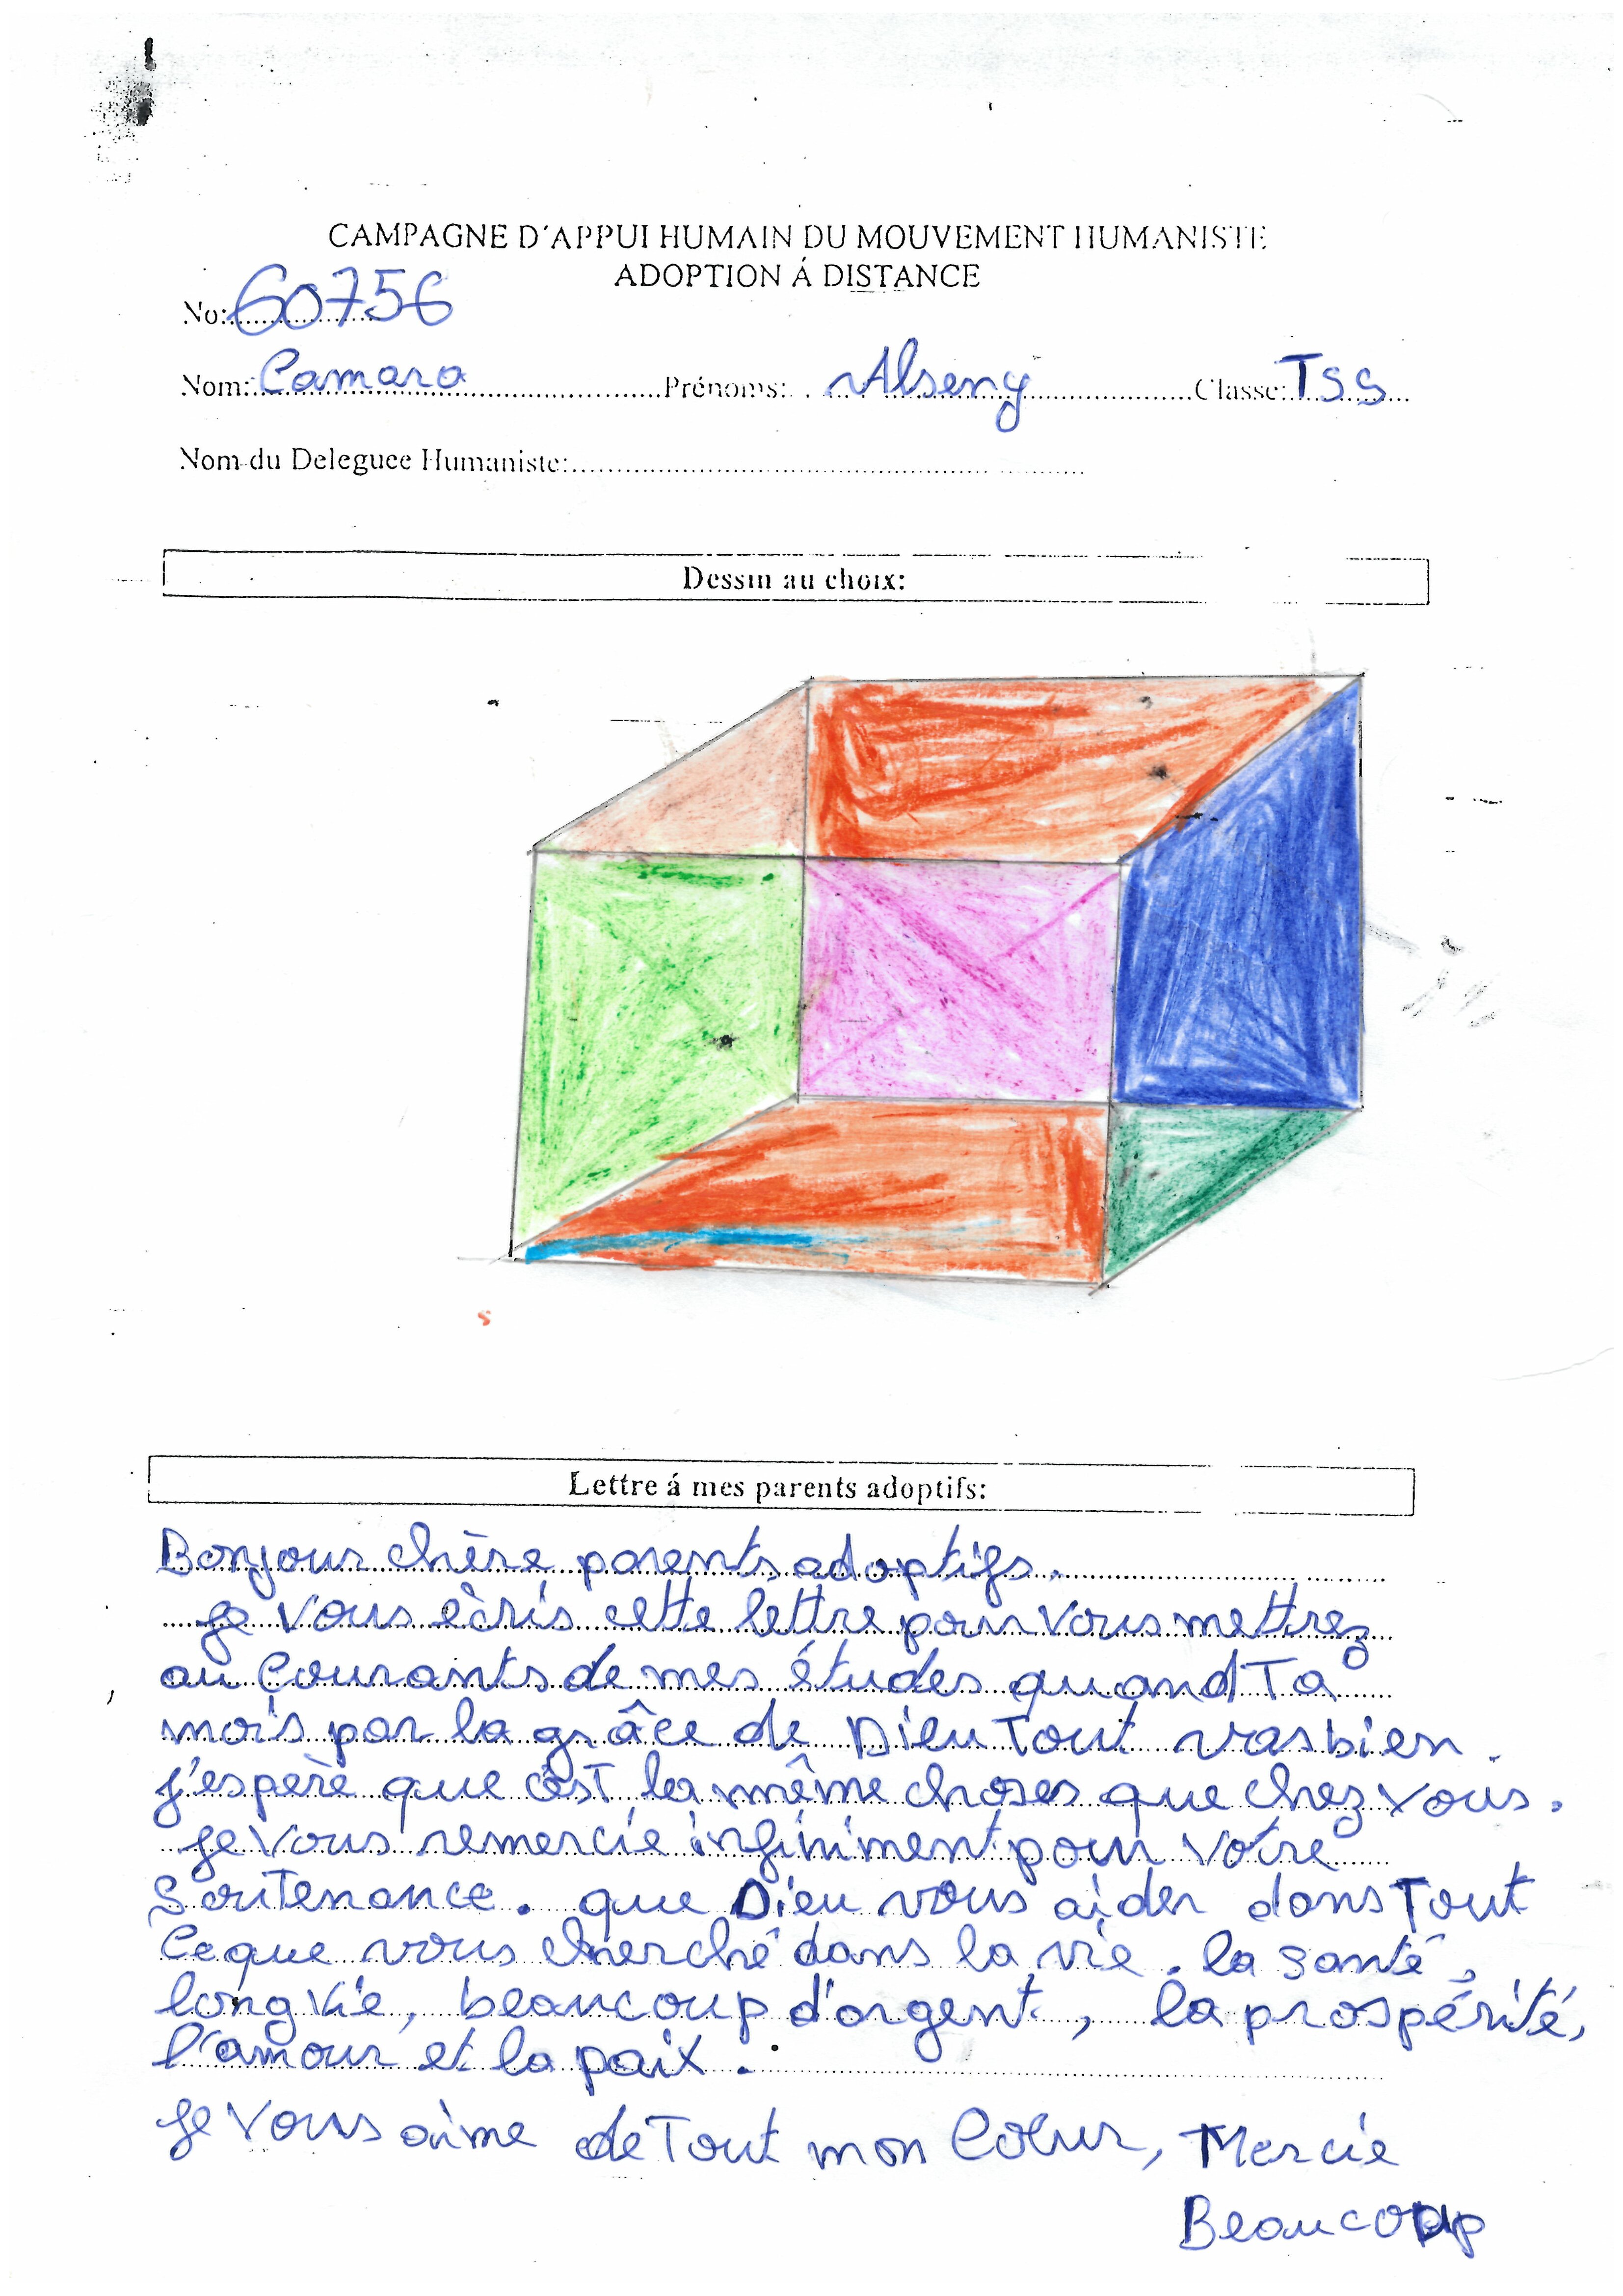 CAMPAGNE D'APPUI HUMAIN DU MOUVEMENT HUMANISTE
ADOPTION Á DISTANCE
No: 60756
Nom: Camara Prénoms: Alseny Classe: TSS
Nom du Deleguee Humaniste:
Dessin au choix:
Lettre á mes parents adoptifs:
Bonjour chère parents adoptifs.
Je vous ècris cette lettre pour vous mettrez
au Courants de mes études quand Ta
mois par la grâce de Dieu Tout vas bien.
j'esperè que c'est la même choses que chez vous.
Je vous remercie infiniment pour votre
Soutenance. que Dieu vous aider dans Tout
Ce que vous cherché dans la vie. la santé,
long vie, beaucoup d'argent, la prospérité,
l'amour et la paix.
Je vous aime de Tout mon Coeur, Mercie
Beaucoup